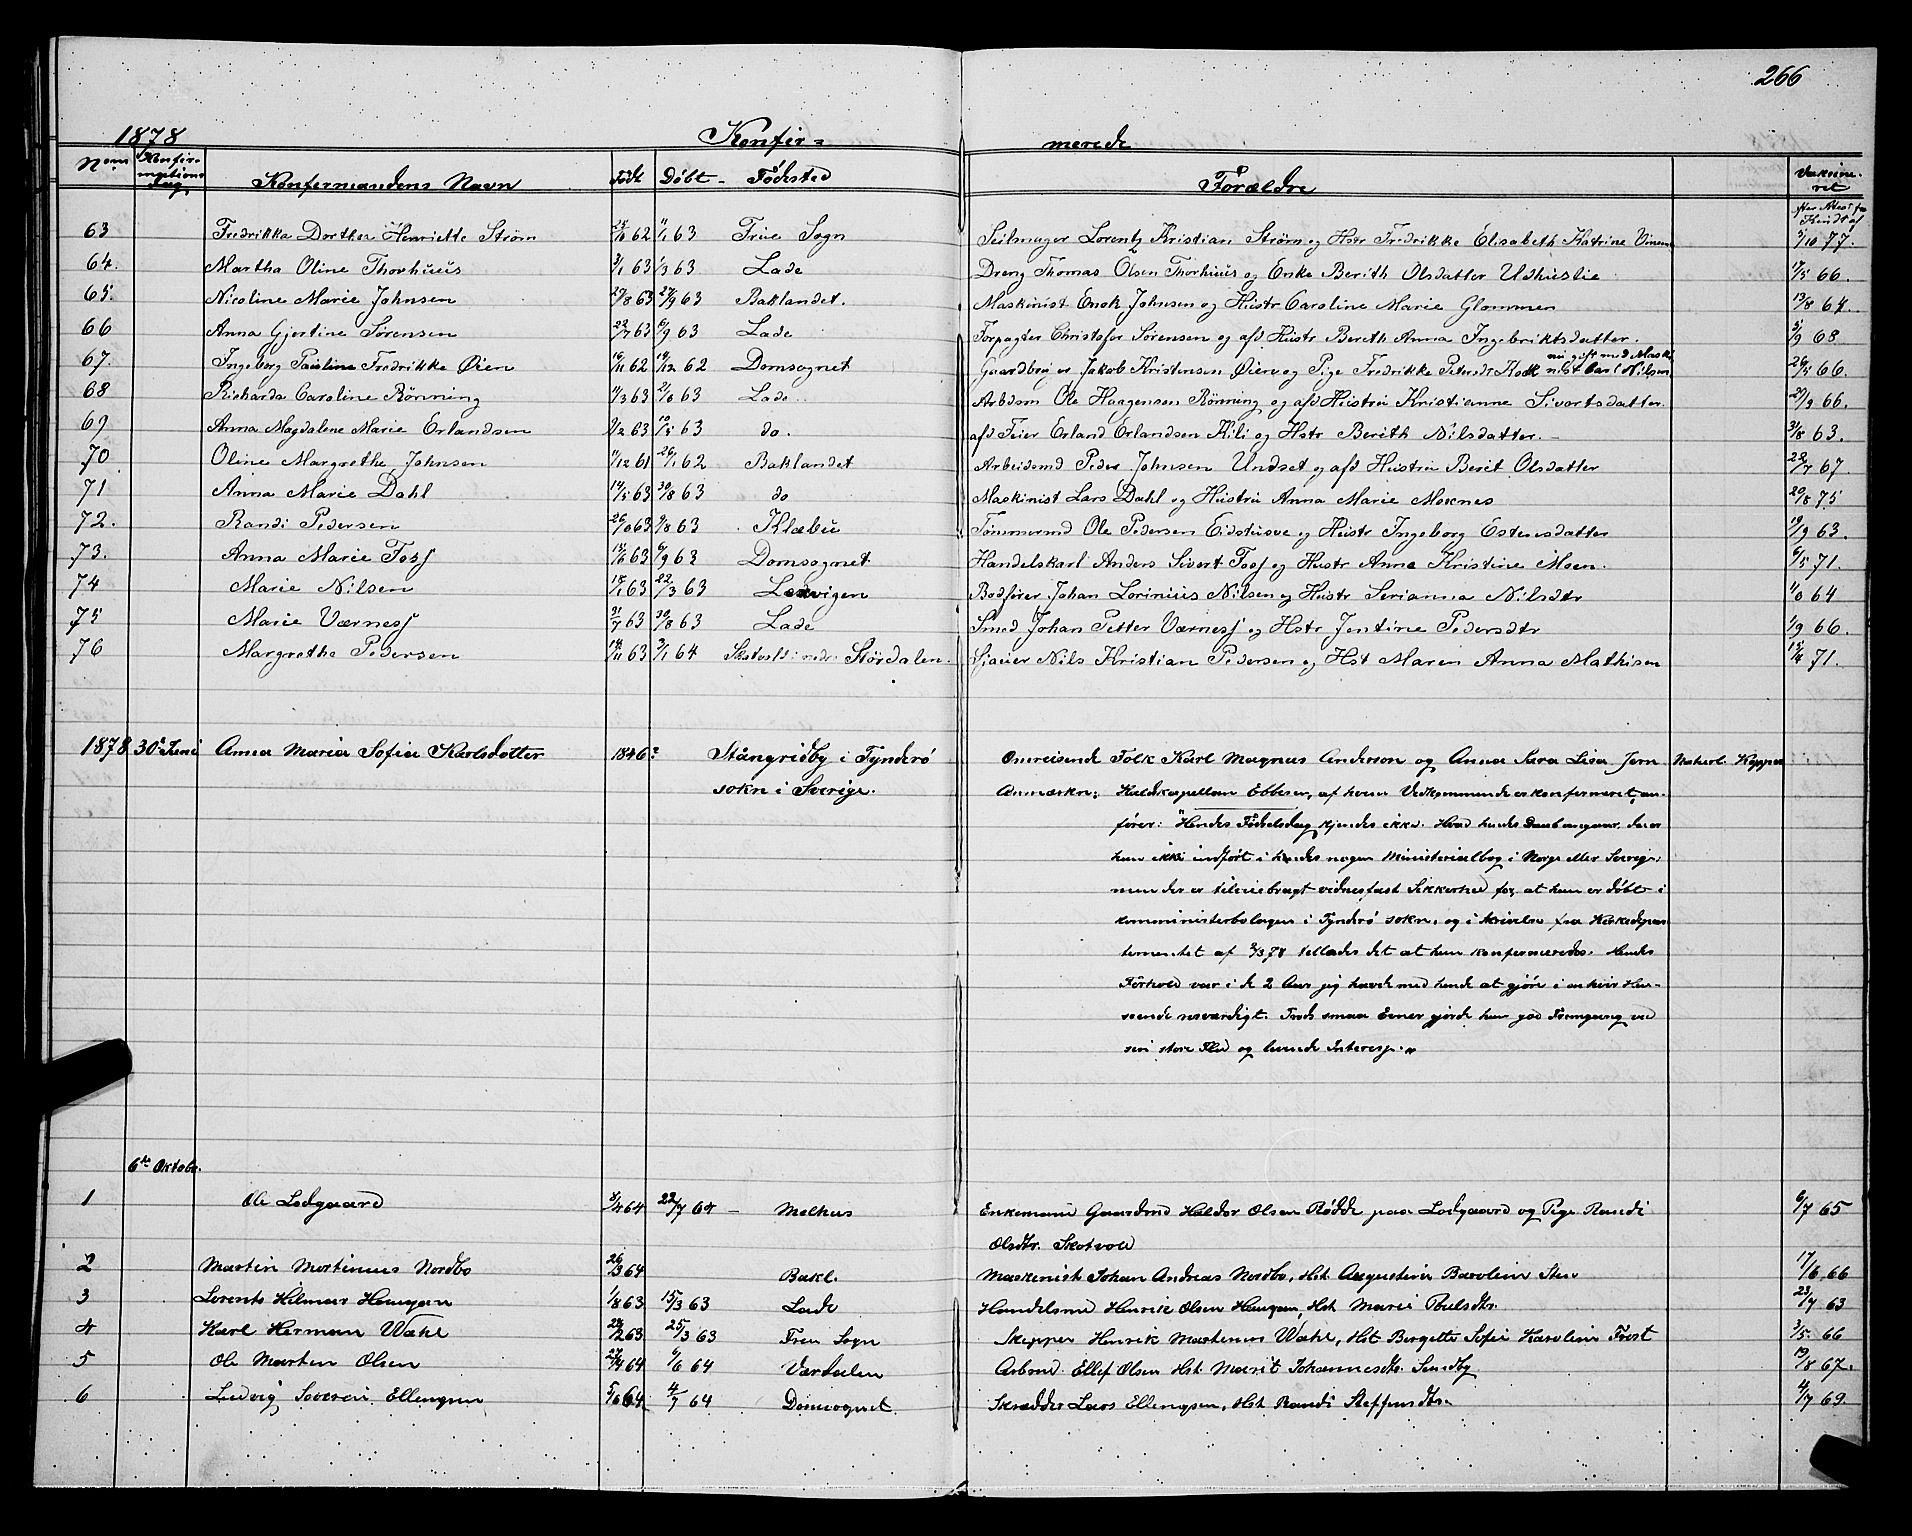 266
1878 Konfir= merede
Nom Konfirmations Dag Konfirmandens Navn Født Døbt - Fødested Forældre Vaksineret
efter Attest fr
63 Fredrikka Dorthea Henriette Strøm 62 1/1 63 Frue Sogn Seilmager Lorentz Kristian Strøm og Hstr Fredrikke Elisabeth Katrine 5/10 77.
64. Martha Oline Thorhuus 3/1 63 1/3 63 Lade Dreng Thomas Olsen Thorhuus og Enke Berith Olsdatter Udhuslie 17/5 66.
65. Nicoline Marie Johnsen 29/8 63 27/9 63 Baklandet. Maskinist Enok Johnsen og Hustr Caroline Marie Glommen 13/8 64.
66 Anna Gjertine Sørensen 22/7 63 6/9 63 Lade Forpagter Christofer Sørensen og afd Hustr Bereth Anna Ingebriktsdatter. 5/9 68
67. Ingeborg Pauline Fredrikke Øien 16/11 62 19/12 62 Domsognet Gaardbruger Jakob Kristensen Øien og Pige Fredrikke Petersdt Kock nu gift med Maskinist Carl Nilsen 26/5 66.
68 Richarda Caroline Rønning 14/3 63 21/6 63 Lade Arbdsm Ole Haagensen Rønning og afd Hustru Kristianne Sivertsdatter. 29/3 66.
69 Anna Magdalene Marie Erlandsen 9/2 63 10/5 63 do. afd Feier Erland Erlandsen Kili og Hstr Berith Nilsdatter. - 31/8 63.
70 Oline Margrethe Johnsen 11/12 61 26/1 62 Baklandet Arbeidsmd Peder Johnsen Undset og afd Hustru Berit Olsdatter 22/7 67
71 Anna Marie Dahl 14/5 63 30/8 63 do Maskinist Lars Dahl og Hustru Anna Marie Moxnes 20/8 75
72. Randi Pedersen 26/6 63 9/8 63 Klæbu Tømmermd Ole Pedersen Eidstusve og Hustr Ingeborg Estensdatter 19/9 63.
73. Anna Marie Foss 15/6 63 6/9 63 Domsognet Handelskarl Anders Sivert Foss og Hustr Anna Kristine Moen. 6/5 71.
74 Marie Nilsen 15/1 63 22/3 63 Lexvigen Bødker Johan Lorinius Nilsen og Hustr Serianna Nilsdtr 64
75 Marie Værness 31/7 63 30/8 63 Lade Smed Johan Petter Værness og Hstr Jentine Pedersdtr 1/9 66.
76 Margrethe Pedersen 14/11 63 3/1 64 nedre Størdalen. Sjauer Nils Kristian Pedersen og Hst Maren Anna Mathisen 15/4 71.
1878 30te Juni Anna Maria Sofia Karlsdotter 1846? Stångridby i Tynderö Omreisende Folk Karl Magnus Anderson og Anna Sara Lisa Jern Naturl. Kopper
sokn i Sverige. Anmærkn: Huldskapellan Ebbesen, af hvem Vedkommende er konfirmeret, an-
fører: "Hendes Fødselsdag kjendes ikke. Hvad hendes Daab angaar, da er
hun ikke indført i hendes nogen Ministerialbog i Norge eller Sverige;
men der er tilveiebragt vidnesfast Sikkerhed for, at hun er døbt i
komministerbolagen i Tynderö sokn, og i Skrivelse fra Kirkedepar-
tementet af 2/3 78 tillades det at hun konfirmeredes. Hendes
Forhold var i de 2 Aar jeg havde med hende at gjøre i enhver Hen-
seende rosværdigt. Trods smaa Evner gjorde hun god Fremgang ved
sin store Flid og levende Interesse."
6te Oktober.
1 Ole Ledgaard 64 22/7 64 - Melhus Enkemand Gaardmd Haldor Olsen Rødde paa Ledgaard og Pige Randi 6/7 65
Olsdtr. Skotvold
2 Martin Martinus Nordbo 26/3 64 Bakl. Maskinist Johan Andreas Nordbo, Hst Augustina Barolin 17/6 66
3 Lorents Hilmar Haugan 1/8 63 15/3 63 Lade Handelsmd Henrik Olsen Haugan, Hst Marie Poulsdtr. 23/7 63
4 Karl Herman Wahl 28/2 63 25/3 63 Frue Sogn Skipper Henrik Martenus Wahl, Hst Bergitte Sofie Karoline Frost 3/5 66
5 Ole Marten Olsen 27/4 64 6/6 64 Værdalen Arbmd Ellef Olsen Hst Marit Johannesdtr. Sundby 19/8 67.
6 Ludvig Severin Ellengsen 5/6 64 4/7 64 Domsognet Skrædder Lars Ellengsen, Hst Randi Steffensdtr. 4/7 69.